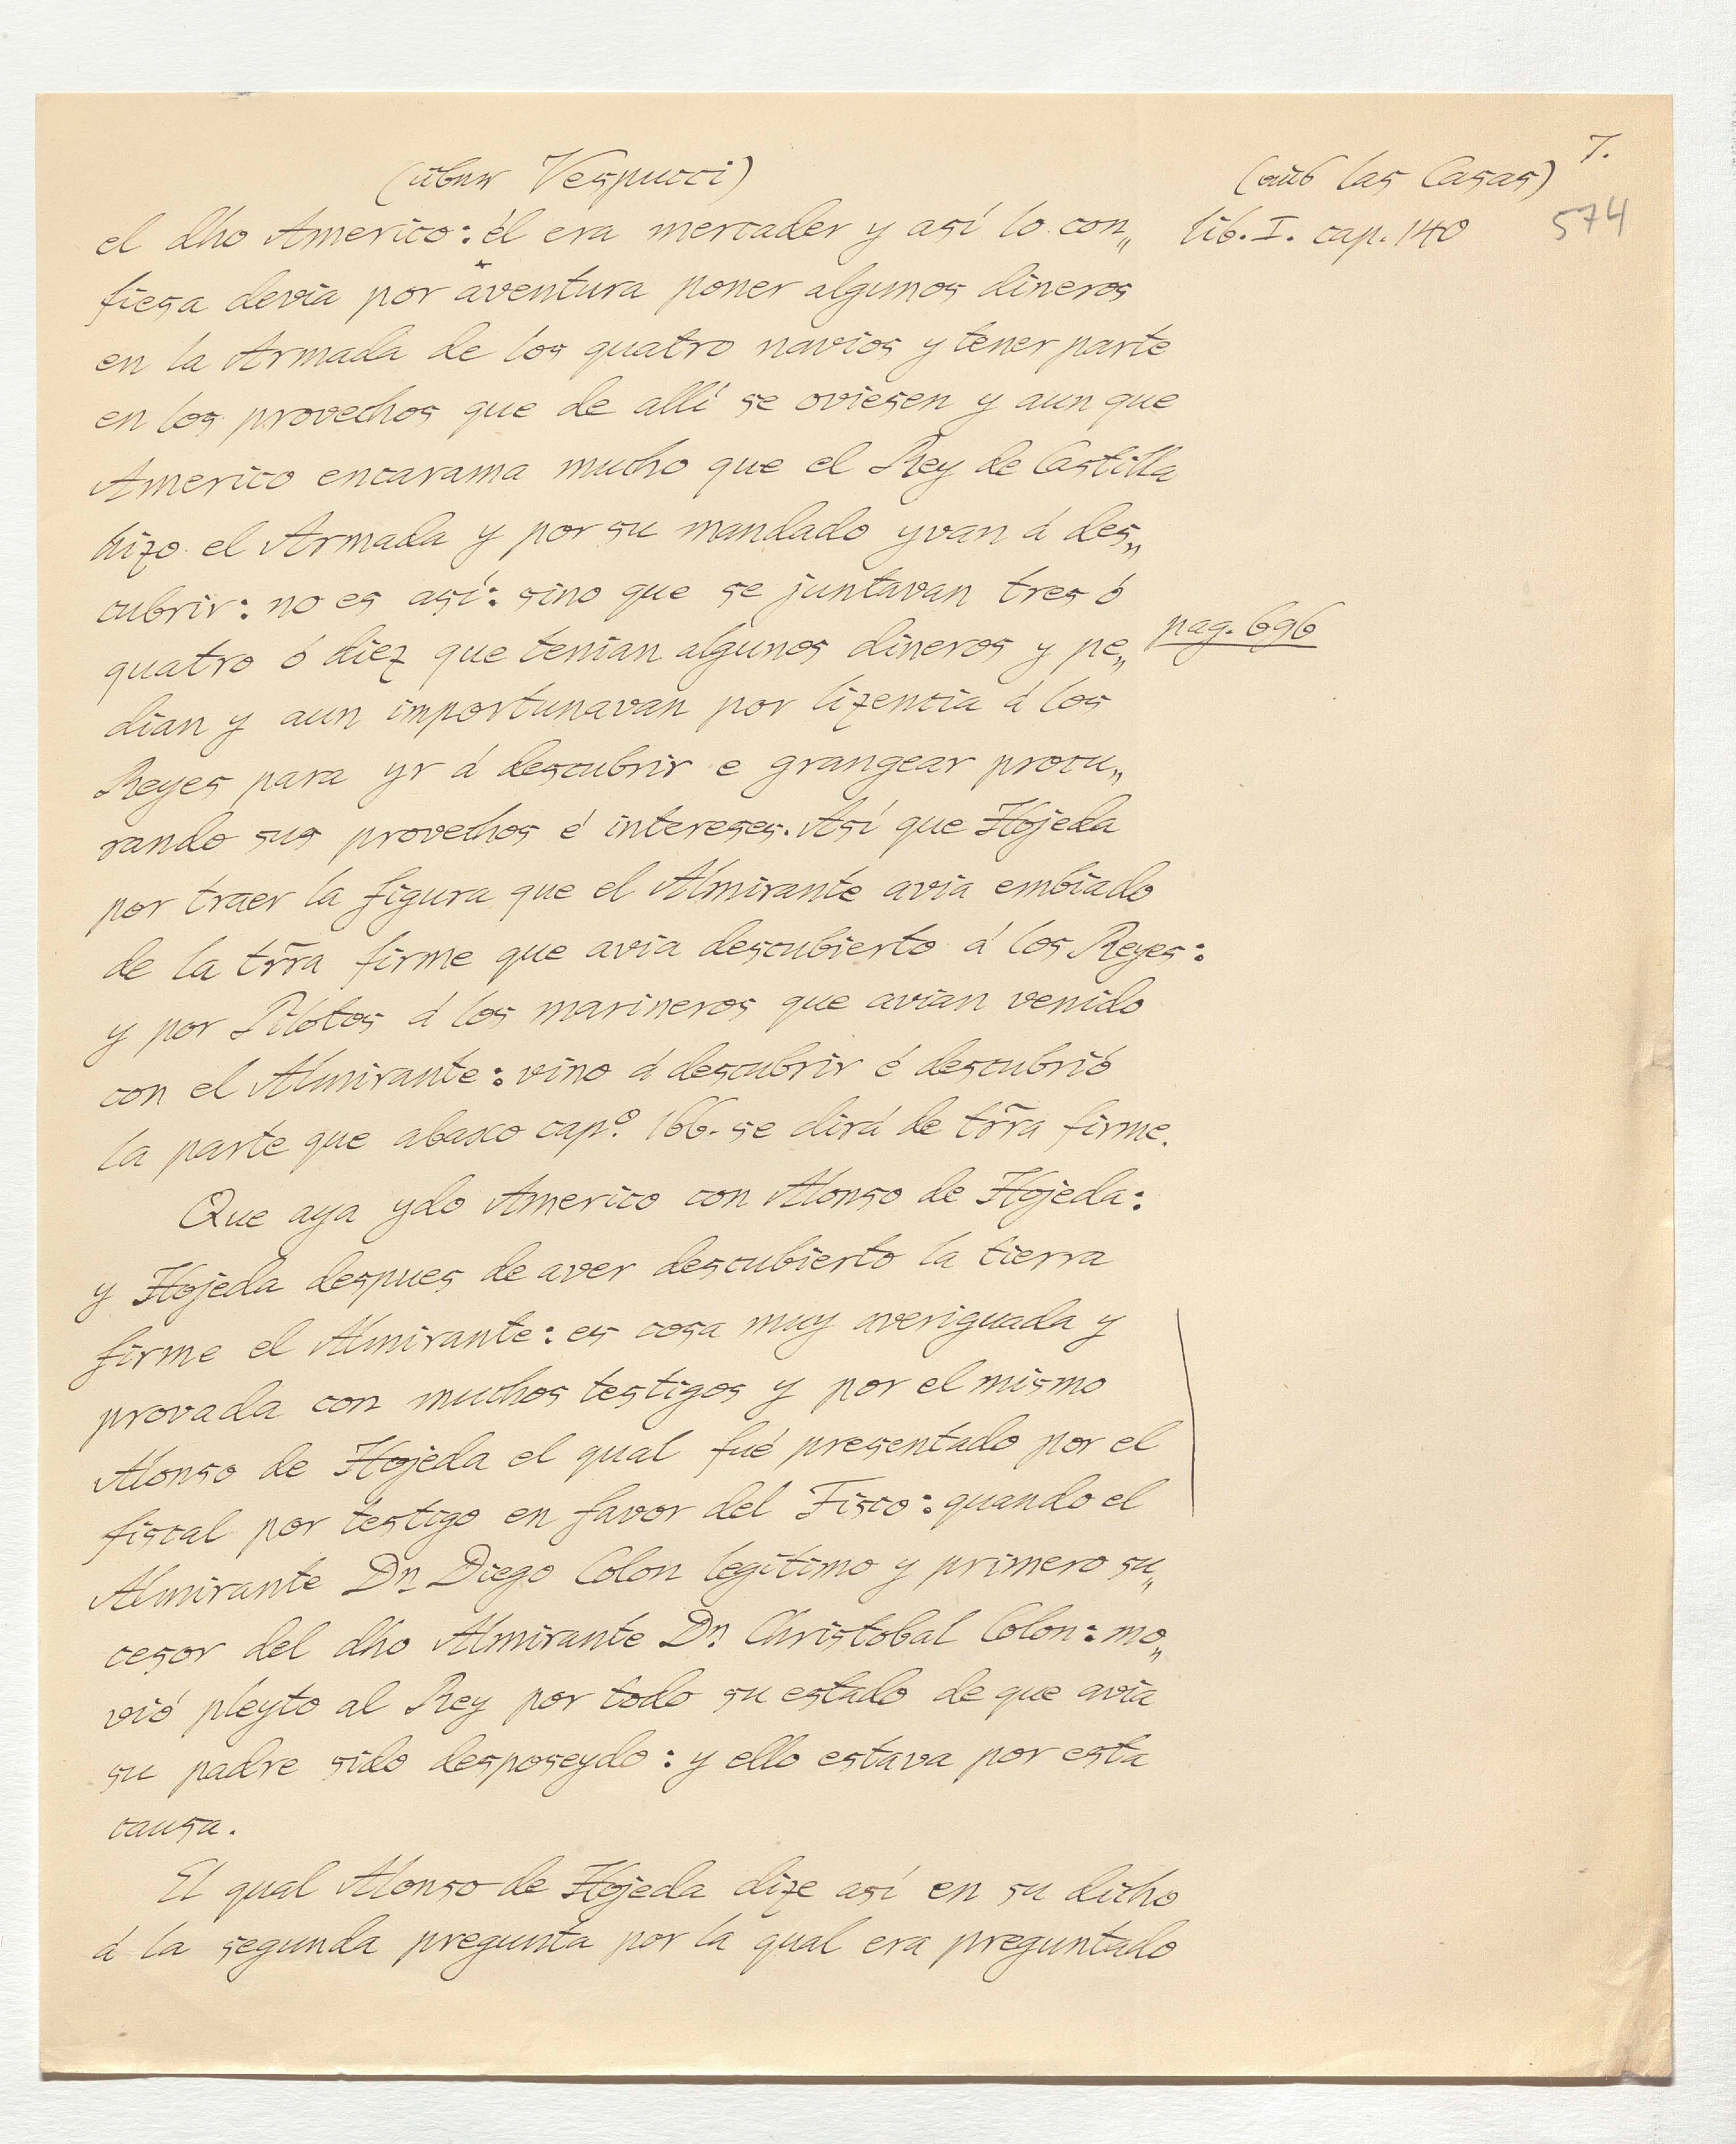 7.
(über Vespucci)
(aus las Casas)
574
lib. I. cap. 140
el dho Americo: él era mercader y así lo con„
fiesa devia por aventura poner algunos dineros
en la Armada de los quatro navios y tener parte
en los provechos que de allí se oviesen y aun que
Americo encarama mucho que el Rey de Castilla
hizo el Armada y por su mandado yvan á des„
cubrir: no es así: sino que se juntavan tres ó
quatro ó diez que tenian algunos dineros y pe„
pag. 696
dian y aun importunavan por lizencia á los
Reyes para yr á descubrir e grangear procu„
rando sus provechos é intereses. Así que Hojeda
por traer la figura que el Almirante avia embiado
de la tr̃ra firme que avia descubierto á los Reyes:
y por Pilotos á los marineros que avian venido
con el Almirante: vino á descubrir é descubrió
la parte que abaxo capº. 166. se dirá de tr̃ra firme.
Que aya ydo Americo con Alonso de Hojeda:
y Hojeda despues de aver descubierto la tierra
firme el Almirante: es cosa muy averiguada y
provada con muchos testigos y por el mismo
Alonso de Hojeda el qual fué presentado por el
fiscal por testigo en favor del Fisco: quando el
Almirante Dn. Diego Colon legitimo y primero su„
cesor del dho Almirante Dn. Christobal Colon: mo„
vió pleyto al Rey por todo su estado de que avia
su padre sido desposeydo: y ello estava por esta
causa.
El qual Alonso de Hojeda dize así en su dicho
á la segunda pregunta por la qual era preguntado